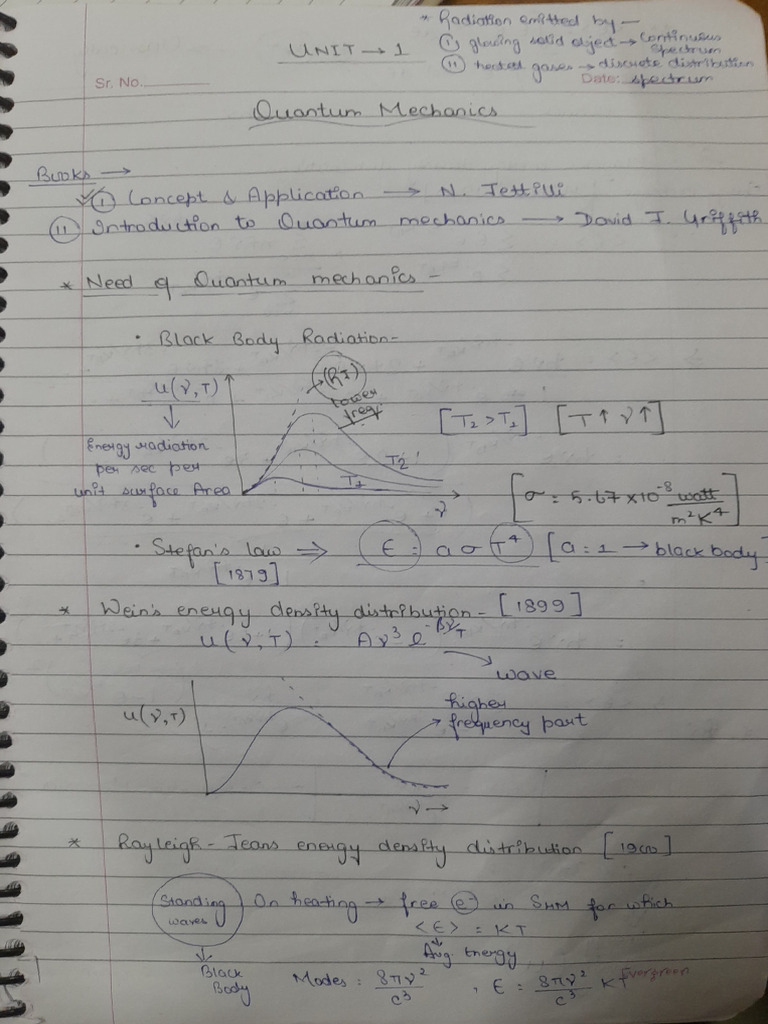 * Radiation emitted by —
(i) glowing solid object → Continuous spectrum
(ii) heated gases → discrete distribution spectrum
UNIT → 1
Sr. No.
Date:
Quantum Mechanics
Books →
✓(i) Concept & Application → N. Jettilli
(ii) Introduction to Quantum mechanics → David J. Griffith
* Need of Quantum mechanics -
• Black Body Radiation-
u(ν,T)
(RJ)
lower freq.
[T₂ > T₁] [T↑ ν↑]
Energy radiation
per sec per
unit surface Area
T₂
T₁
ν
[σ = 5.67 × 10⁻⁸ watt/m²K⁴]
• Stefan's law ⇒ E = a σ T⁴ [a = 1 → black body]
[1879]
* Wein's energy density distribution - [1899]
u(ν,T) = Aν³ e^-βν/T
wave
u(ν,T)
higher
frequency part
ν →
* Rayleigh - Jeans energy density distribution [1900]
Standing waves On heating → free e⁻ in SHM for which
<E> = KT
Avg. Energy
Black
Body
Modes = 8πν²/c³ , E = 8πν²/c³ KT
Evergreen